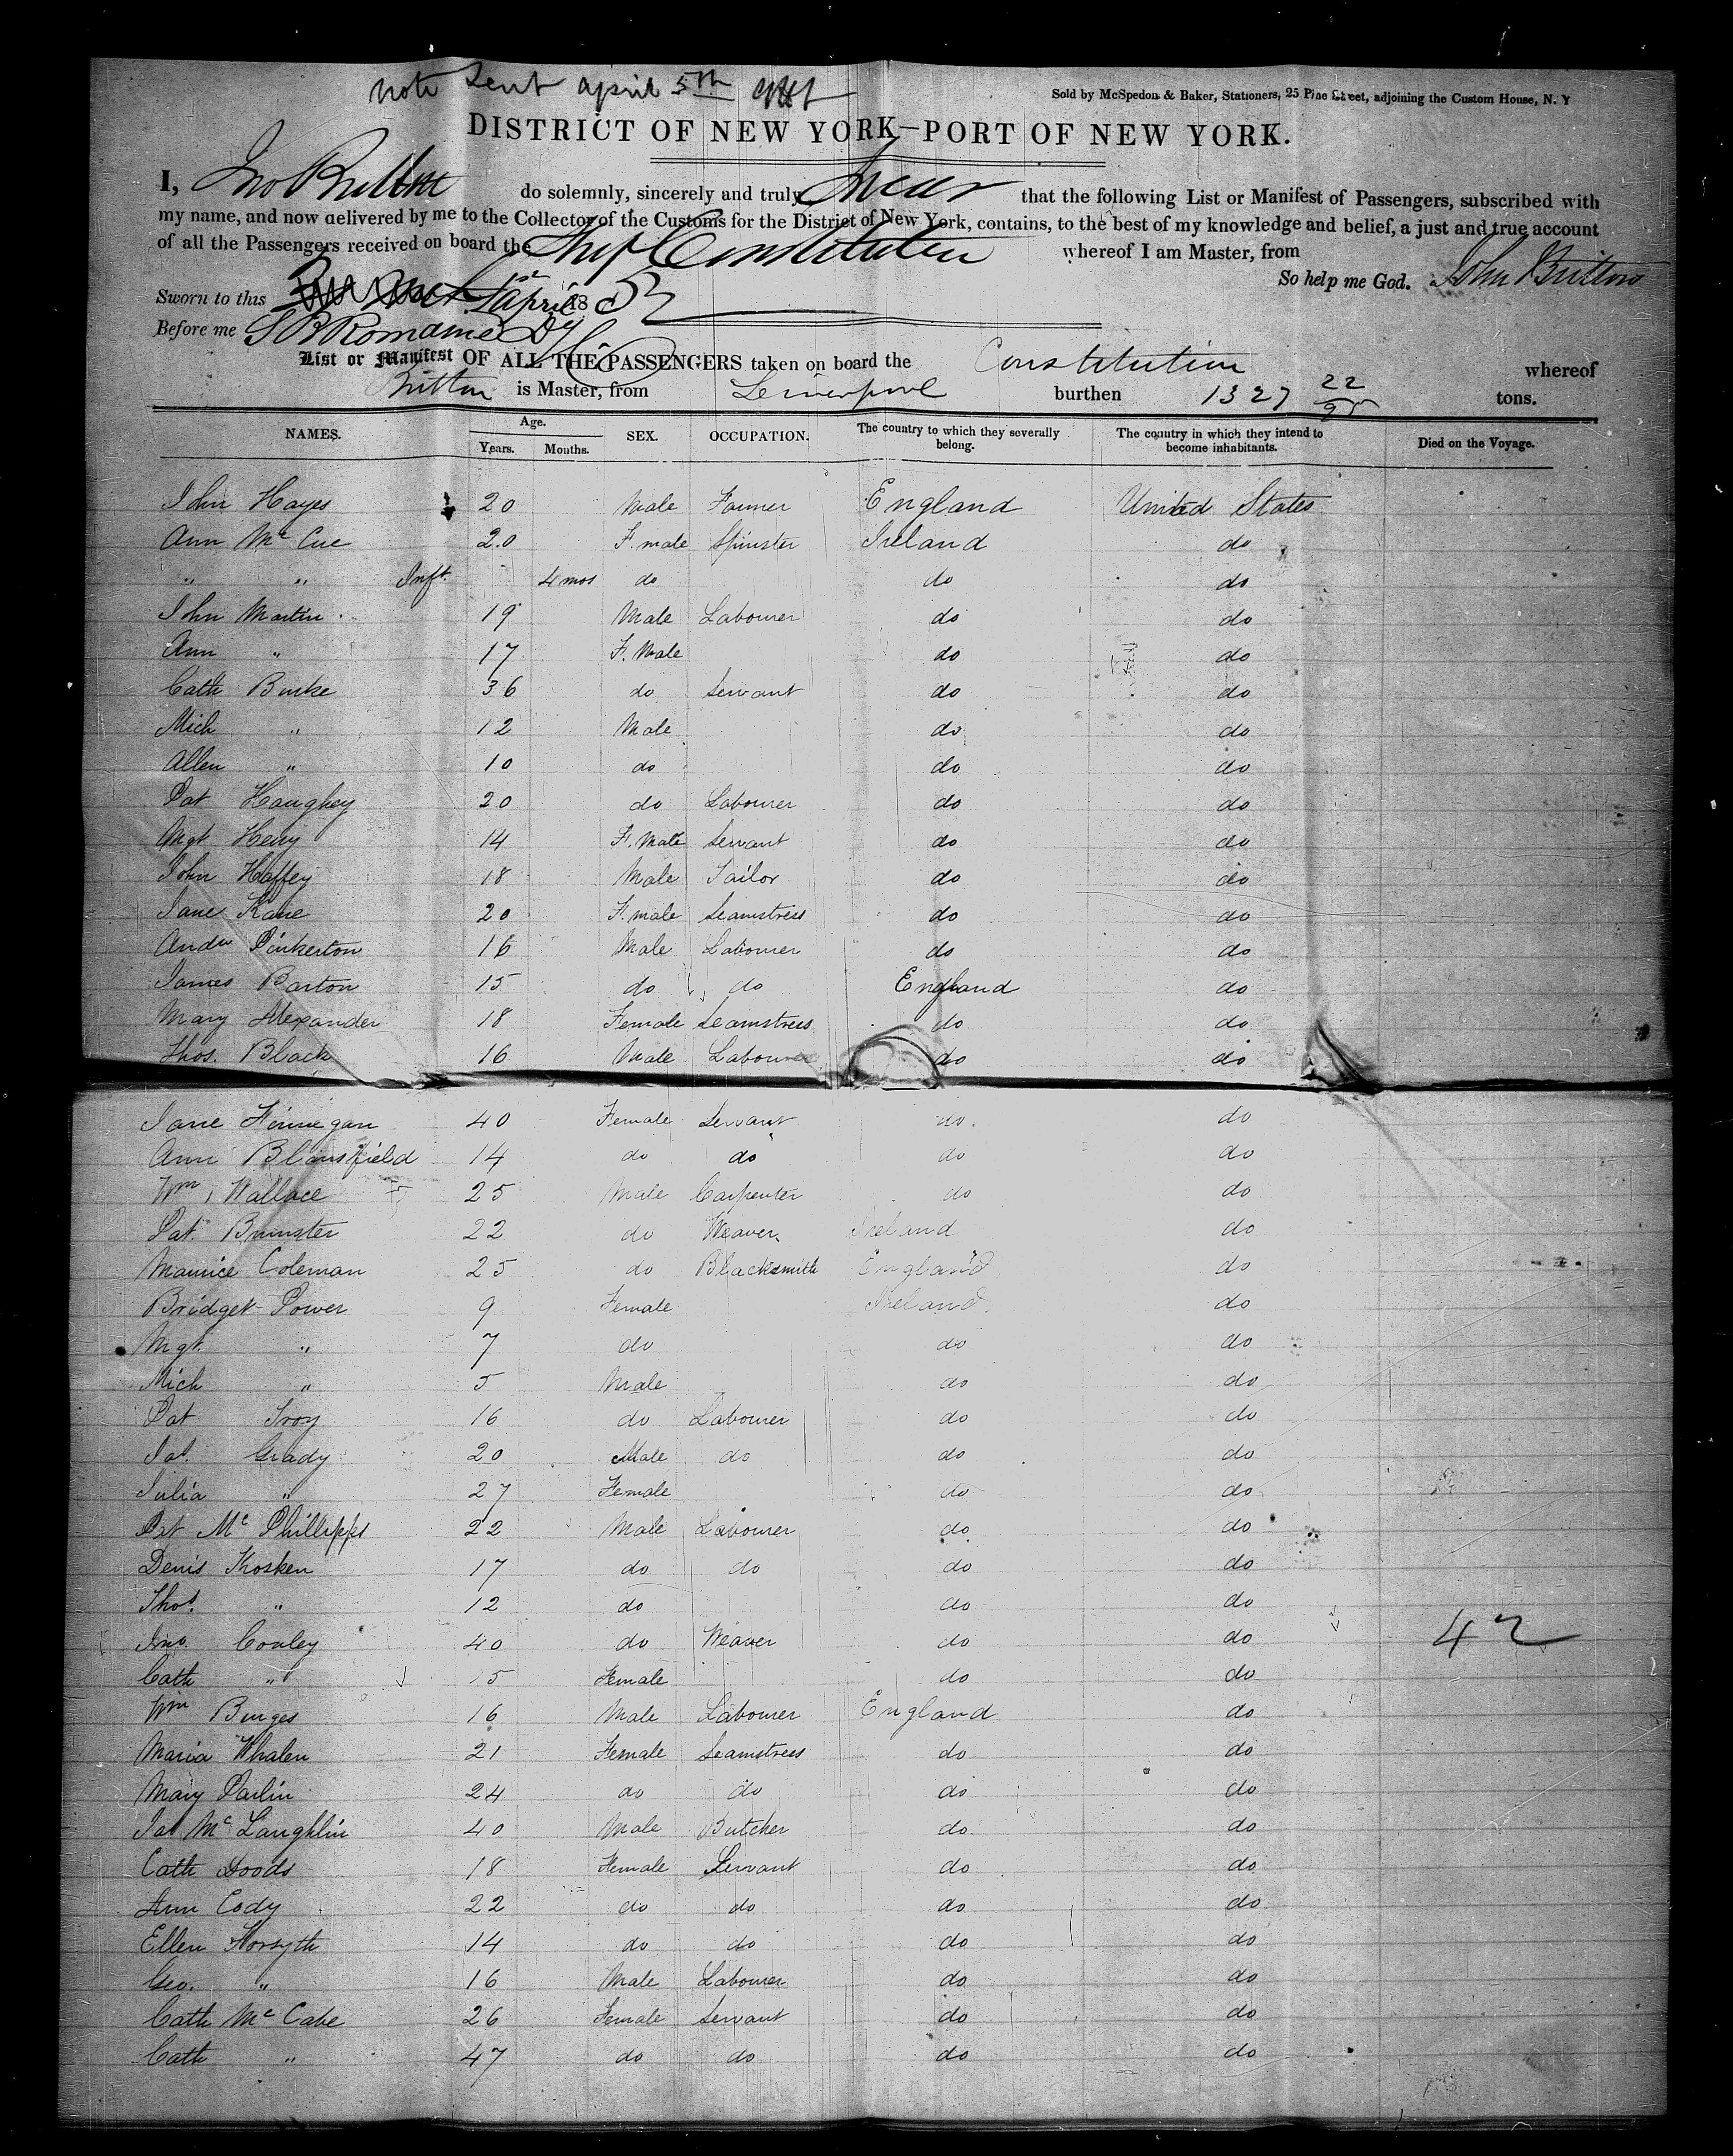 note sent april 5th
Sold by McSpedon & Baker, Stationers, 25 Pine Street, adjoining the Custom House, N. Y
DISTRICT OF NEW YORK—PORT OF NEW YORK.
I, Jno Britton do solemnly, sincerely and truly swear that the following List or Manifest of Passengers, subscribed with
my name, and now delivered by me to the Collector of the Customs for the District of New York, contains, to the best of my knowledge and belief, a just and true account
of all the Passengers received on board the Ship Constitution whereof I am Master, from
So help me God. John Britton
Sworn to this 1st april 1852
Before me S B Romaine Dy
List or Manifest OF ALL THE PASSENGERS taken on board the Constitution whereof
Britton is Master, from Liverpool burthen 1327 22/95 tons.
NAMES. Age. Years. Months. SEX. OCCUPATION. The country to which they severally belong. The country in which they intend to become inhabitants. Died on the Voyage.
John Hayes 20 Male Farmer England United States
Ann Mc Cue 20 F. male Spinster Ireland do
" " Inft. 4 mos do do do
John Martin 19 Male Labourer do do
Ann " 17 F. Male do do
Cath Burke 36 do Servant do do
Mich " 12 Male do do
Allen " 10 do do do
Pat Haughey 20 do Labourer do do
Mgt Henry 14 F. Male Servant do do
John Haffey 18 Male Tailor do do
Jane Kane 20 F. male Seamstress do do
Andw Pinkerton 16 Male Labourer do do
James Barton 15 do do England do
Mary Alexander 18 Female Seamstress do do
Thos. Black 16 Male Labourer do do
Jane Finnegan 40 Female Servant do do
Ann Blansfield 14 do do do do
Wm Wallace 25 Male Carpenter do do
Pat. Brunster 22 do Weaver Ireland do
Maurice Coleman 25 do Blacksmith England do
Bridget Power 9 Female Ireland do
Mgt. " 7 do do do
Mich " 5 Male do do
Pat Troy 16 do Labourer do do
Jas. Grady 20 Male do do do
Julia " 27 Female do do
Pat Mc Phillipps 22 Male Labourer do do
Denis Kosken 17 do do do do
Thos. " 12 do do do
Jno. Conley 40 do Weaver do do 42
Cath " 15 Female do do
Wm Burges 16 Male Labourer England do
Maria Whalen 21 Female Seamstress do do
Mary Parlin 24 do do do do
Jas Mc Laughlin 40 Male Butcher do do
Cath Doods 18 Female Servant do do
Ann Cody 22 do do do do
Ellen Forsyth 14 do do do do
Geo. " 16 Male Labourer do do
Cath Mc Cabe 26 Female Servant do do
Cath " 47 do do do do